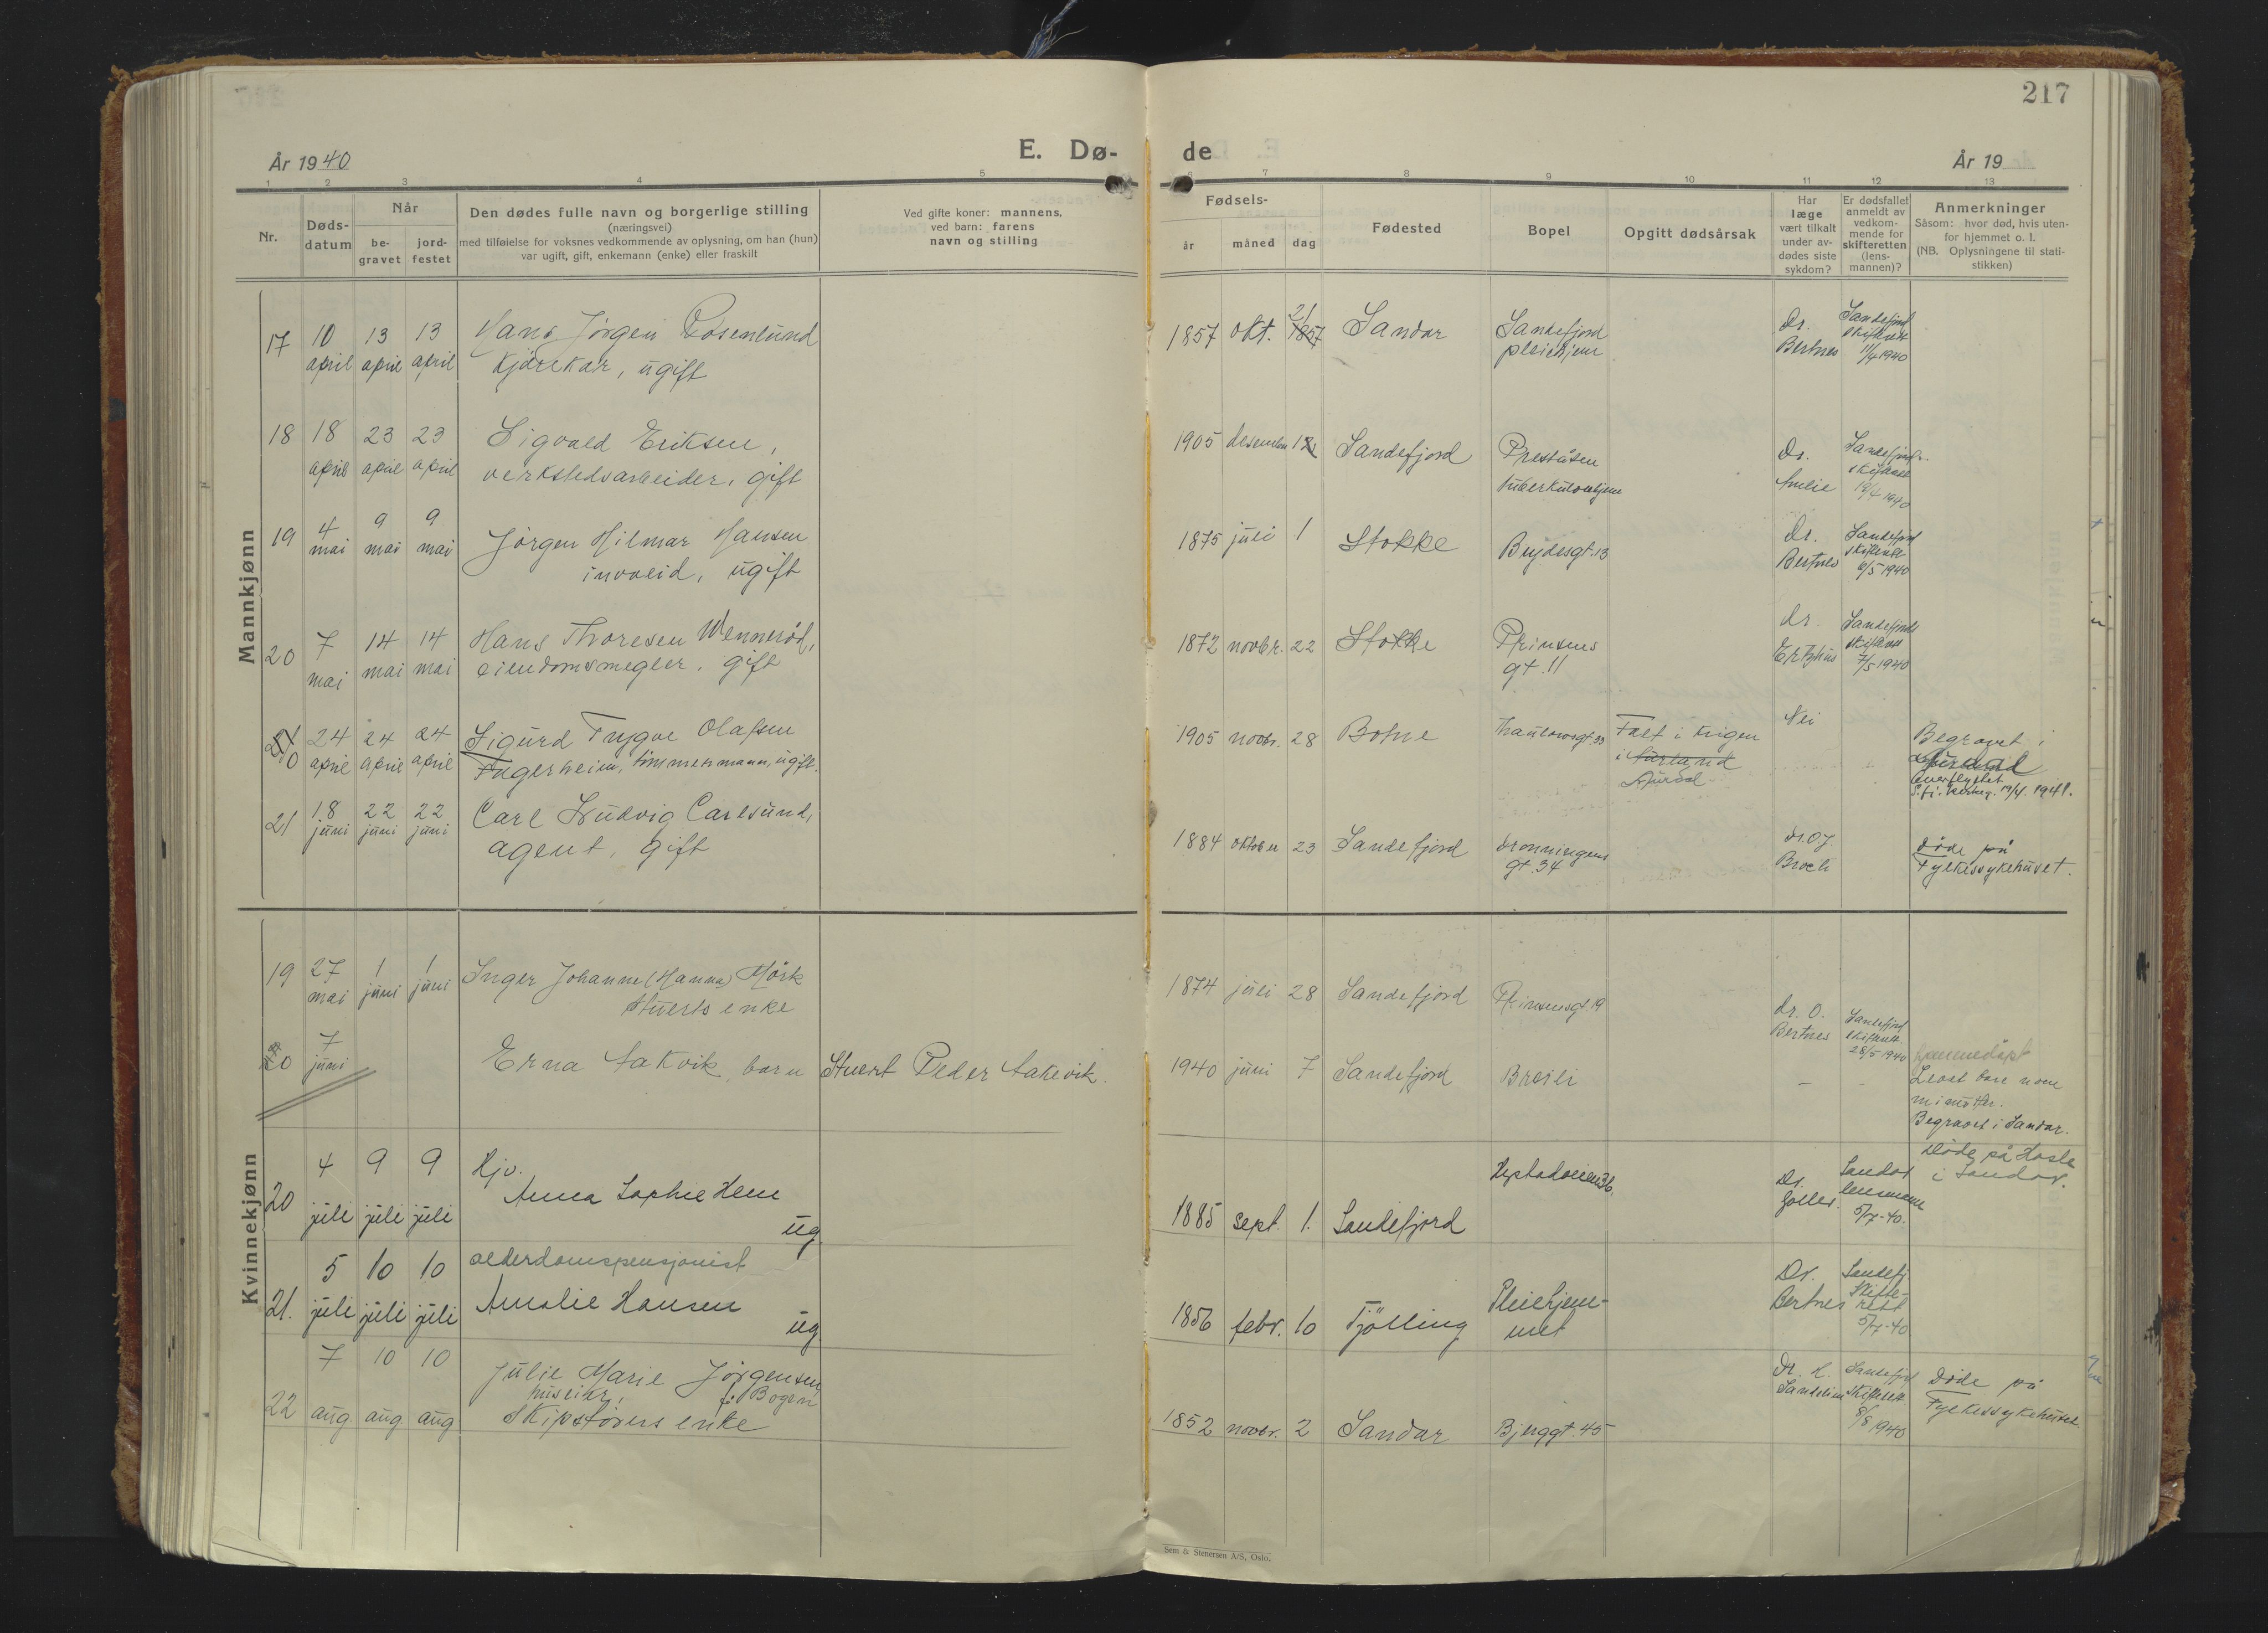 217
År 1940
E. Dø-
de
År 19
1 2 3 4 5
6 7 8 9 10 11 12 13
Nr.
Døds-
datum
Når
be-
gravet
jord-
festet
Den dødes fulle navn og borgerlige stilling
(næringsvei)
med tilføielse for voksnes vedkommende av oplysning, om han (hun)
var ugift, gift, enkemann (enke) eller fraskilt
Ved gifte koner: mannens,
ved barn: farens
navn og stilling
Fødsels-
år måned dag
Fødested
Bopel
Opgitt dødsårsak
Har
læge
vært tilkalt
under av-
dødes siste
sykdom?
Er dødsfallet
anmeldt av
vedkom-
mende for
skifteretten
(lens-
mannen)?
Anmerkninger
Såsom: hvor død, hvis uten-
for hjemmet o. l.
(NB. Oplysningene til stati-
stikken)
Mannkjønn
17 10 13 13 Hans Jörgen Rosenlund
april april april Kjörekar, ugift
1857 okt. 21 1857 Sandar
Sandefjord
pleiehjem
Dr.
Bertnes
Sandefjord
skifterett
11/4 1940
18 18 23 23 Sigvald Eriksen,
april april april verkstedsarbeider, gift
1905 desember Sandefjord
Preståsen
tuberkulosehjem
Dr.
Sandefjord
skifterett
19/4 1940
19 4 9 9 Jörgen Hilmar Hansen
mai mai mai invalid, ugift
1875 juli 1 Stokke
Bugdesgt. 13
Dr.
Bertnes
Sandefjord
skifterett
6/5 1940
20 7 14 14 Hans Thoresen Wenneröd,
mai mai mai eiendomsmegler, gift
1872 novbr. 22 Stokke
Prinsens
gt. 11
dr.
Sandefjord
skifterett
7/5 1940
24 24 24 Sigurd Trygve Olafsen
april april april Fagerheim, timmermann, ugift.
1905 novbr. 28 Botne
Thaulowsgt. 33
Falt i krigen
i
Nei
Begravet i
Overflyttet
S.fj. kirkeg. 19/4. 1941.
21 18 22 22 Carl Ludvig Carlsund,
juni juni juni agent, gift
1884 oktober 23 Sandefjord
dronningens
gt. 34
dr. O.J.
Broch
döde på
Fylkessykehuset.
Kvinnekjønn
19 27 1 1 Inger Johanne (Hanna) Mörk
mai juni juni Stuerts enke
1874 juli 28 Sandefjord
Prinsensgt. 19
dr. O.
Bertnes
Sandefjord
skifterett
28/5 1940
20 7 Erna Takvik, barn Stuert Peder Takvik.
juni
1940 juni 7 Sandefjord
–
hjemmedöpt
Levet bare noen
minutter.
Begravet i Sandar.
20 4 9 9 Hjv.
juli juli juli Anna Sophie Hem
ug
1885 sept. 1. Sandefjord
Dr.
Sandar
lensmann
5/7-40.
Döde på Hasle
i Sandar.
21. 5 10 10 alderdomspensjonist
juli juli juli Amalie Hansen
ug
1856 febr. 10 Tjölling
Pleiehjem-
met
Dr.
Bertnes
Sandefj
Skifte-
rett
5/7-40
22 7 10 10 Julie Marie Jörgensen
aug. aug. aug. f. Bogen
Skipsförers enke
1852 novbr. 2 Sandar
Bjerggt. 45
Dr. H.
Sandefjord
skifterett
8/8 1940
Döde på
Fylkessykehuset
Sem & Stenersen A/S, Oslo.